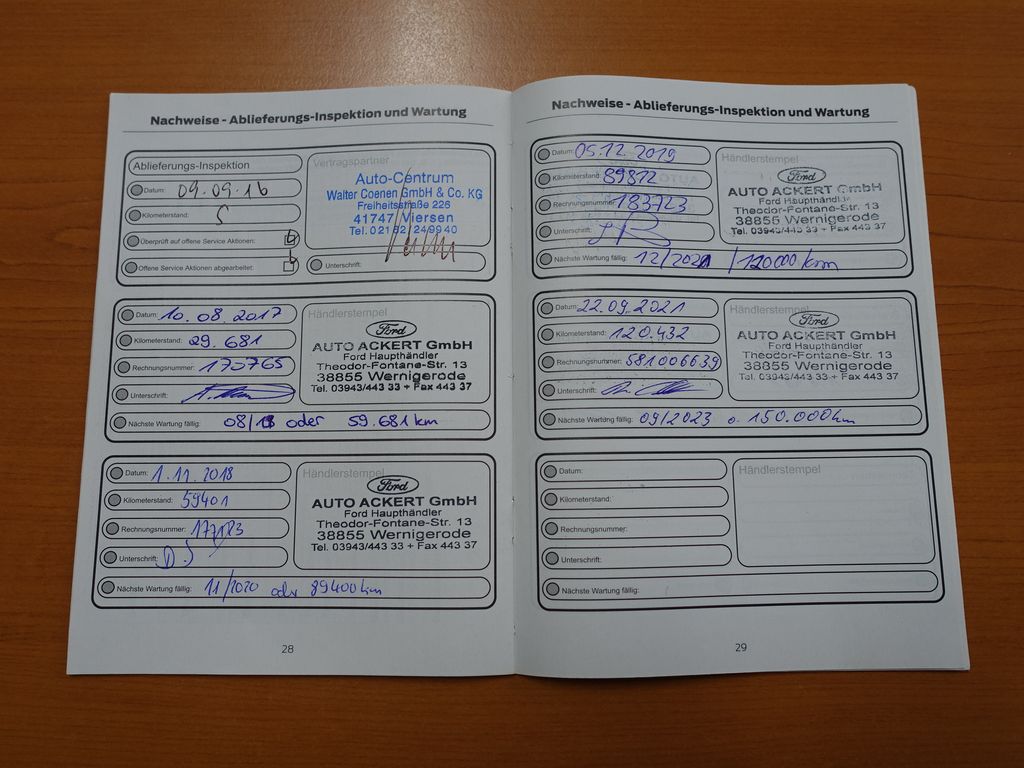 Nachweise - Ablieferungs-Inspektion und Wartung
Ablieferungs-Inspektion
Datum: 09.09.16
Kilometerstand: 5
Überprüft auf offene Service Aktionen:
Offene Service Aktionen abgearbeitet:
Vertragspartner
Auto-Centrum
Walter Coenen GmbH & Co. KG
Freiheitsstraße 226
41747 Viersen
Tel. 02162/249940
Unterschrift:
Datum: 10.08.2017
Kilometerstand: 29.681
Rechnungsnummer:
Unterschrift:
Händlerstempel
Ford
AUTO ACKERT GmbH
Ford Haupthändler
Theodor-Fontane-Str. 13
38855 Wernigerode
Tel. 03943/443 33 + Fax 443 37
Nächste Wartung fällig: 08/18 oder 59.681 km
Datum: 1.11.2018
Kilometerstand: 59401
Rechnungsnummer:
Unterschrift:
Händlerstempel
Ford
AUTO ACKERT GmbH
Ford Haupthändler
Theodor-Fontane-Str. 13
38855 Wernigerode
Tel. 03943/443 33 + Fax 443 37
Nächste Wartung fällig: 11/2020 oder 89400 km
28
Nachweise - Ablieferungs-Inspektion und Wartung
Datum: 05.12.2019
Kilometerstand: 89872
Rechnungsnummer: 183723
Unterschrift:
Händlerstempel
Ford
AUTO ACKERT GmbH
Ford Haupthändler
Theodor-Fontane-Str. 13
38855 Wernigerode
Tel. 03943/443 33 + Fax 443 37
Nächste Wartung fällig: 12/2021 / 120000 km
Datum: 22.09.2021
Kilometerstand: 120.432
Rechnungsnummer: 581006639
Unterschrift:
Händlerstempel
Ford
AUTO ACKERT GmbH
Ford Haupthändler
Theodor-Fontane-Str. 13
38855 Wernigerode
Tel. 03943/443 33 + Fax 443 37
Nächste Wartung fällig: 09/2023 o. 150.000 km
Datum:
Kilometerstand:
Rechnungsnummer:
Unterschrift:
Händlerstempel
Nächste Wartung fällig:
29